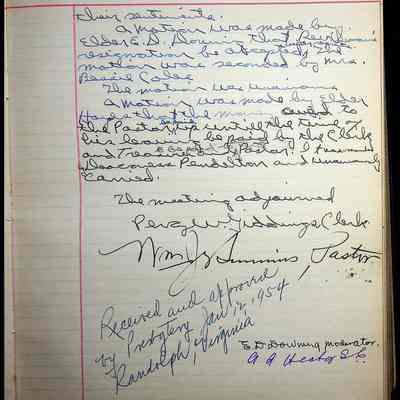 their sentiments.
A motion was made by
Elder E. D. Downing that Rev.
resignation be accepted. The
motion was seconded by Mrs.
Bessie Coles
The motion was unanimous
A motion was made by Elder
that the to
the Pastor up until the time of
his leaving be paid by the Clerk
and Treasurer
Deaconess Pendleton and unanimously
carried.
The meeting adjourned
Percy W. Giddings Clerk
Wm J. Pastor
Received and approved
by Presbytery Jan 12, 1954
Randolph, Virginia
E. D. Downing moderator.
S. C.